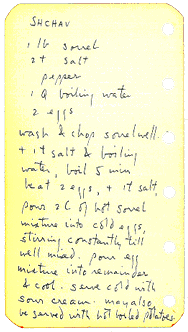 SHCHAV
1 lb sorrel
2 t salt
pepper
1 Q boiling water
2 eggs
wash & chop sorrel well.
+ 1 t salt & boiling
water, boil 5 min
beat 2 eggs, + 1 t salt,
pour 2 C of hot sorrel
mixture into cold eggs,
stirring constantly till
well mixed. pour egg
mixture into remainder
& cool. serve cold with
sour cream. may also
be served with hot boiled potatoes.